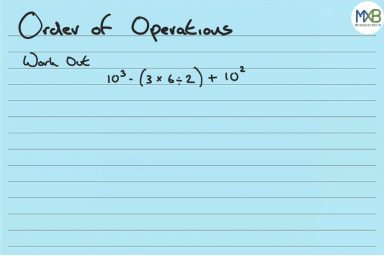 Order of Operations
MXB
Work Out
10³ - (3 × 6 ÷ 2) + 10²